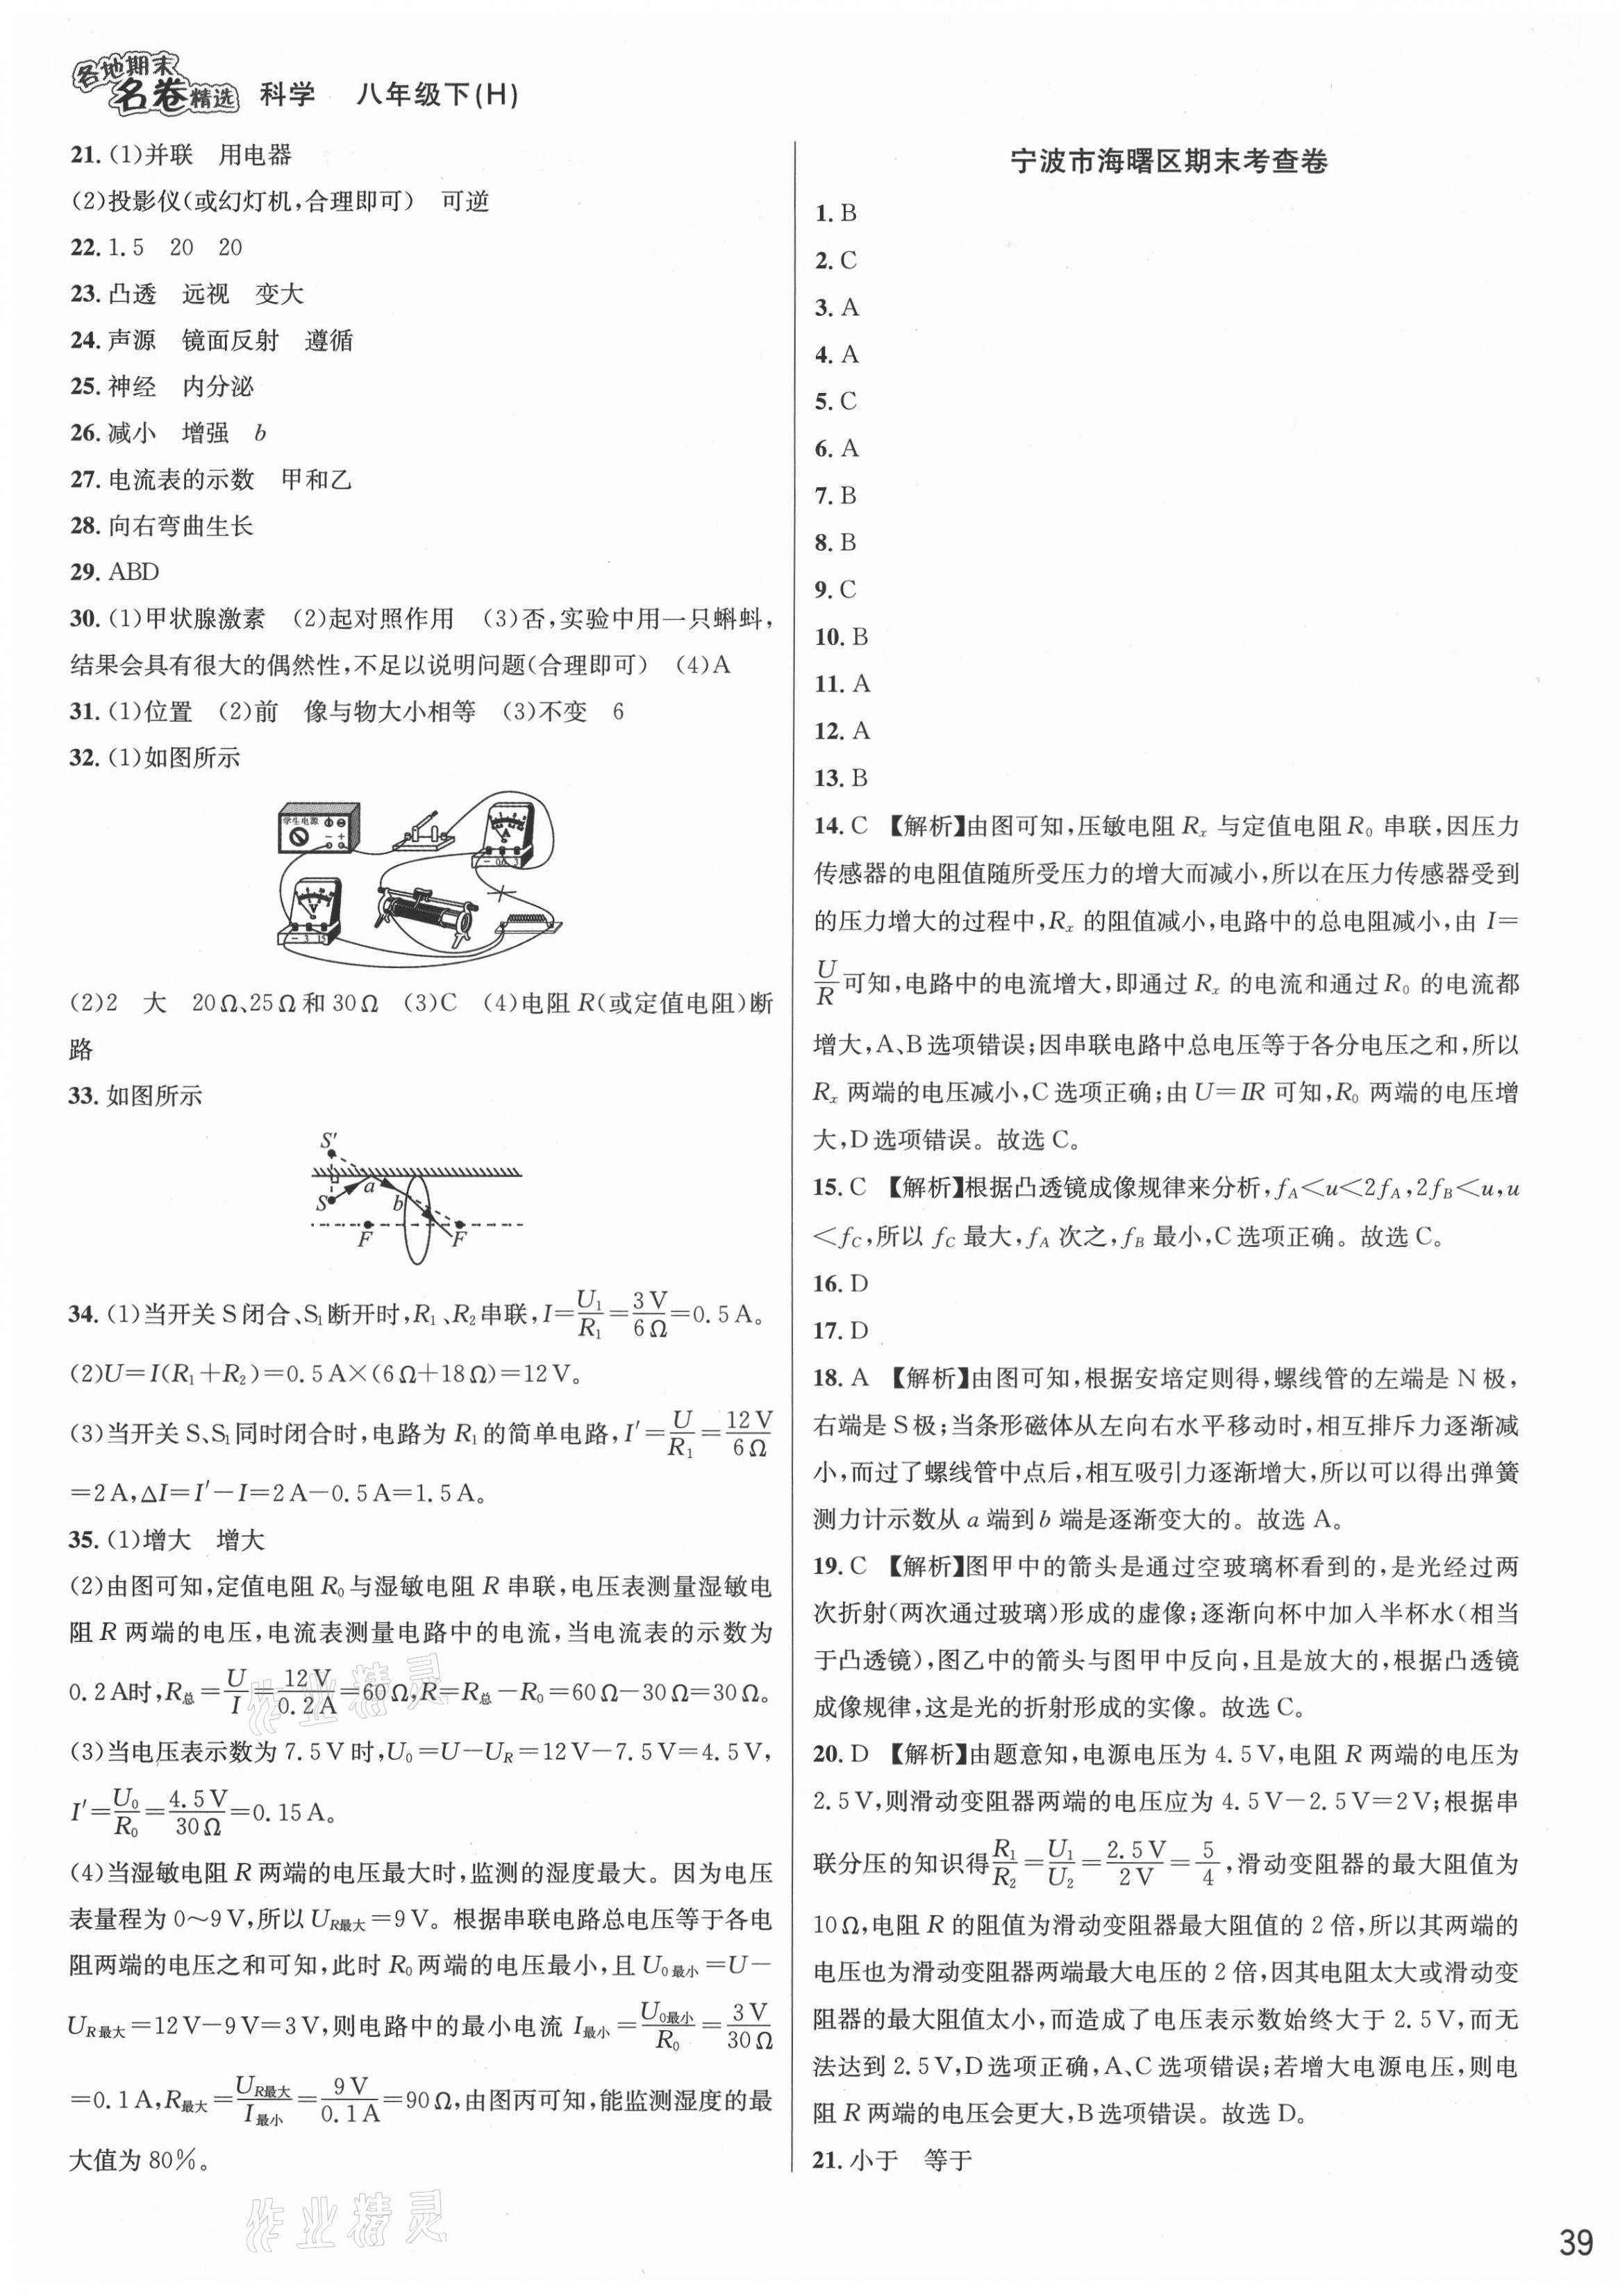 各地期末
名卷精选 科学 八年级下(H)
21. (1)并联 用电器
(2)投影仪(或幻灯机,合理即可) 可逆
22. 1.5 20 20
23. 凸透 远视 变大
24. 声源 镜面反射 遵循
25. 神经 内分泌
26. 减小 增强 b
27. 电流表的示数 甲和乙
28. 向右弯曲生长
29. ABD
30. (1)甲状腺激素 (2)起对照作用 (3)否,实验中用一只蝌蚪,
结果会具有很大的偶然性,不足以说明问题(合理即可) (4)A
31. (1)位置 (2)前 像与物大小相等 (3)不变 6
32. (1)如图所示
学生电源
A
V
(2)2 大 20Ω、25Ω和30Ω (3)C (4)电阻R(或定值电阻)断
路
33. 如图所示
S′
S a b
F F
34. (1)当开关S闭合、S₁断开时,R₁、R₂串联,I=U₁/R₁=3V/6Ω=0.5A。
(2)U=I(R₁+R₂)=0.5A×(6Ω+18Ω)=12V。
(3)当开关S、S₁同时闭合时,电路为R₁的简单电路,I′=U/R₁=12V/6Ω
=2A,ΔI=I′-I=2A-0.5A=1.5A。
35. (1)增大 增大
(2)由图可知,定值电阻R₀与湿敏电阻R串联,电压表测量湿敏电
阻R两端的电压,电流表测量电路中的电流,当电流表的示数为
0.2A时,R总=U/I=12V/0.2A=60Ω,R=R总-R₀=60Ω-30Ω=30Ω。
(3)当电压表示数为7.5V时,U₀=U-U_R=12V-7.5V=4.5V,
I′=U₀/R₀=4.5V/30Ω=0.15A。
(4)当湿敏电阻R两端的电压最大时,监测的湿度最大。因为电压
表量程为0～9V,所以U_R最大=9V。根据串联电路总电压等于各电
阻两端的电压之和可知,此时R₀两端的电压最小,且U₀最小=U-
U_R最大=12V-9V=3V,则电路中的最小电流I最小=U₀最小/R₀=3V/30Ω
=0.1A,R最大=U_R最大/I最小=9V/0.1A=90Ω,由图丙可知,能监测湿度的最
大值为80%。
作业精灵
作业精灵
宁波市海曙区期末考查卷
1. B
2. C
3. A
4. A
5. C
6. A
7. B
8. B
9. C
10. B
11. A
12. A
13. B
14. C 【解析】由图可知,压敏电阻Rₓ与定值电阻R₀串联,因压力
传感器的电阻值随所受压力的增大而减小,所以在压力传感器受到
的压力增大的过程中,Rₓ的阻值减小,电路中的总电阻减小,由I=
U/R可知,电路中的电流增大,即通过Rₓ的电流和通过R₀的电流都
增大,A、B选项错误;因串联电路中总电压等于各分电压之和,所以
Rₓ两端的电压减小,C选项正确;由U=IR可知,R₀两端的电压增
大,D选项错误。故选C。
15. C 【解析】根据凸透镜成像规律来分析,f_A<u<2f_A,2f_B<u,u
<f_C,所以f_C最大,f_A次之,f_B最小,C选项正确。故选C。
16. D
17. D
18. A 【解析】由图可知,根据安培定则得,螺线管的左端是N极,
右端是S极;当条形磁体从左向右水平移动时,相互排斥力逐渐减
小,而过了螺线管中点后,相互吸引力逐渐增大,所以可以得出弹簧
测力计示数从a端到b端是逐渐变大的。故选A。
19. C 【解析】图甲中的箭头是通过空玻璃杯看到的,是光经过两
次折射(两次通过玻璃)形成的虚像;逐渐向杯中加入半杯水(相当
于凸透镜),图乙中的箭头与图甲中反向,且是放大的,根据凸透镜
成像规律,这是光的折射形成的实像。故选C。
20. D 【解析】由题意知,电源电压为4.5V,电阻R两端的电压为
2.5V,则滑动变阻器两端的电压应为4.5V-2.5V=2V;根据串
联分压的知识得R₁/R₂=U₁/U₂=2.5V/2V=5/4,滑动变阻器的最大阻值为
10Ω,电阻R的阻值为滑动变阻器最大阻值的2倍,所以其两端的
电压也为滑动变阻器两端最大电压的2倍,因其电阻太大或滑动变
阻器的最大阻值太小,而造成了电压表示数始终大于2.5V,而无
法达到2.5V,D选项正确,A、C选项错误;若增大电源电压,则电
阻R两端的电压会更大,B选项错误。故选D。
21. 小于 等于
39